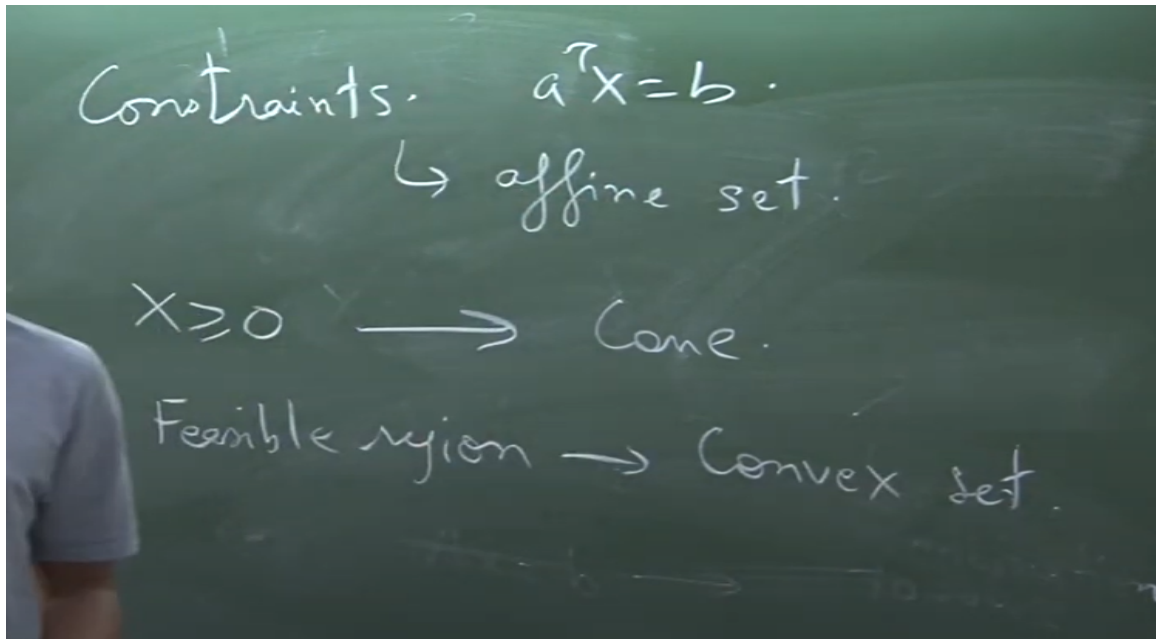 Constraints. aᵀx = b.
↳ affine set.
X ≥ 0 ⟶ Cone.
Feasible region → Convex set.